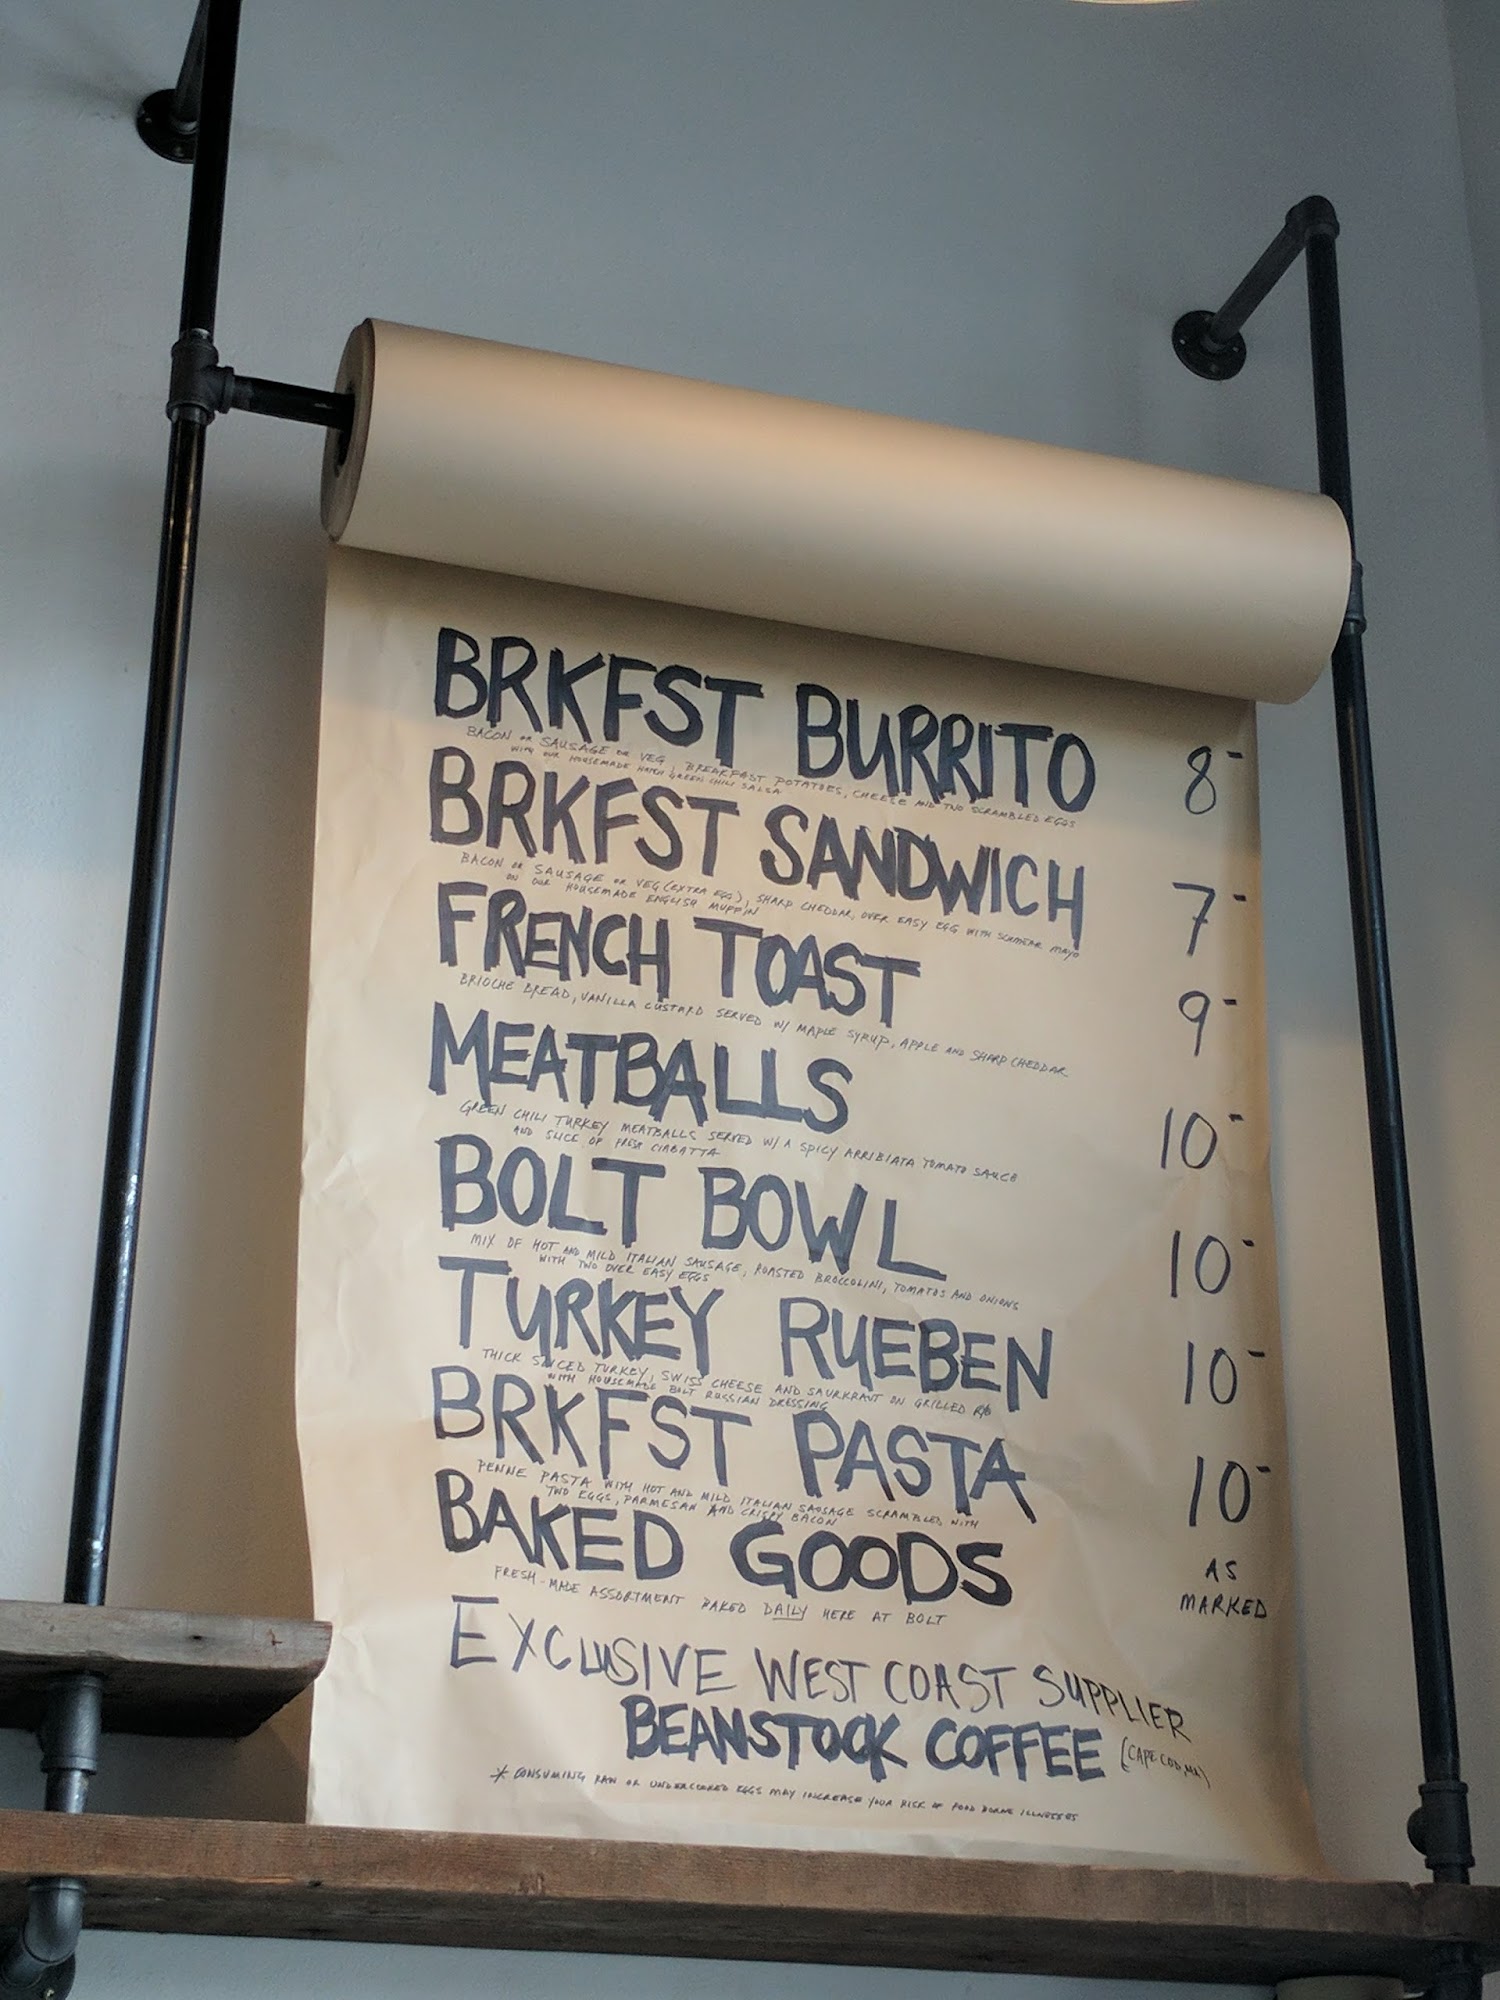 BRKFST BURRITO 8-
BACON OR SAUSAGE OR VEG, BREAKFAST POTATOES, CHEESE AND TWO SCRAMBLED EGGS
WITH OUR HOUSEMADE HATCH GREEN CHILI SALSA
BRKFST SANDWICH 7-
BACON OR SAUSAGE OR VEG (EXTRA EGG), SHARP CHEDDAR, OVER EASY EGG WITH SCHMEAR MAYO
ON OUR HOUSEMADE ENGLISH MUFFIN
FRENCH TOAST 9-
BRIOCHE BREAD, VANILLA CUSTARD SERVED W/ MAPLE SYRUP, APPLE AND SHARP CHEDDAR
MEATBALLS 10-
GREEN CHILI TURKEY MEATBALLS SERVED W/ A SPICY ARRIBIATA TOMATO SAUCE
AND SLICE OF FRESH CIABATTA
BOLT BOWL 10-
MIX OF HOT AND MILD ITALIAN SAUSAGE, ROASTED BROCCOLINI, TOMATOS AND ONIONS
WITH TWO OVER EASY EGGS
TURKEY RUEBEN 10-
THICK SLICED TURKEY, SWISS CHEESE AND SAURKRAUT ON GRILLED RYE
WITH HOUSEMADE BOLT RUSSIAN DRESSING
BRKFST PASTA 10-
PENNE PASTA WITH HOT AND MILD ITALIAN SAUSAGE SCRAMBLED WITH
TWO EGGS, PARMESAN AND CRISPY BACON
BAKED GOODS AS MARKED
FRESH-MADE ASSORTMENT BAKED DAILY HERE AT BOLT
EXCLUSIVE WEST COAST SUPPLIER
BEANSTOCK COFFEE (CAPE COD, MA)
* CONSUMING RAW OR UNDERCOOKED EGGS MAY INCREASE YOUR RISK OF FOOD BORNE ILLNESSES